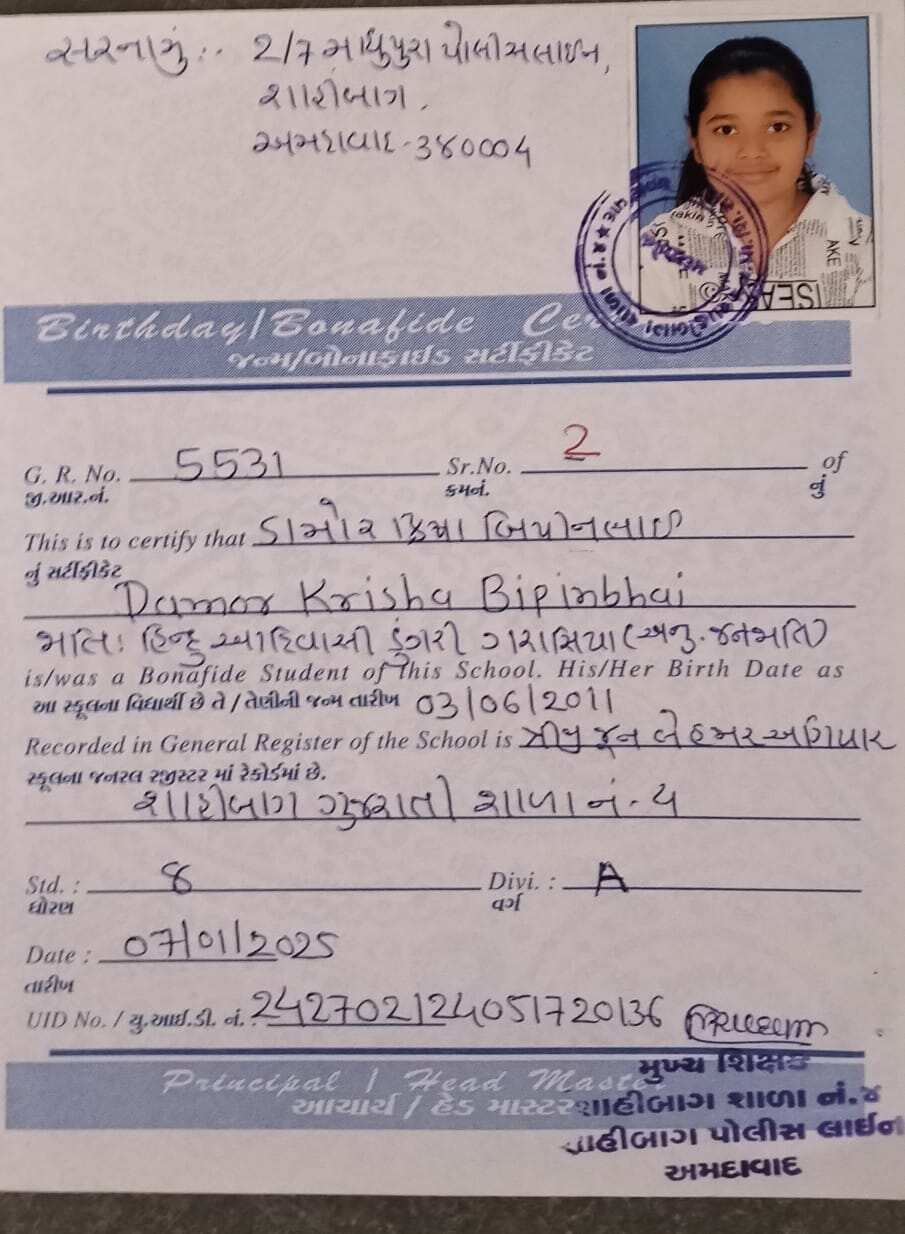 સરનામું :- 2/7 માધુપુરા પોલીસલાઇન,
શાહીબાગ.
અમદાવાદ-380004
Birthday/Bonafide Cer
જન્મ/બોનાફાઇડ સર્ટીફીકેટ
G. R. No. 5531 Sr.No. 2 of
જી.આર.નં. ક્રમનં. નું
This is to certify that ડામોર ક્રિષા બિપીનભાઈ
નું સર્ટીફીકેટ
Damor Krisha Bipinbhai
જાતિ: હિન્દુ આદિવાસી ડુંગરી ગરાસિયા (અનુ. જનજાતિ)
is/was a Bonafide Student of This School. His/Her Birth Date as
આ સ્કૂલના વિદ્યાર્થી છે તે / તેણીની જન્મ તારીખ 03/06/2011
Recorded in General Register of the School is ત્રીજી જૂન બે હજાર અગિયાર
સ્કૂલના જનરલ રજીસ્ટર માં રેકોર્ડમાં છે.
શાહીબાગ ગુજરાતી શાળા નં. ૪
Std. : 8 Divi. : A
ધોરણ વર્ગ
Date : 07/01/2025
તારીખ
UID No. / યુ.આઈ.ડી. નં. : 242702124051720136
મુખ્ય શિક્ષક
Principal / Head Maste
આચાર્ય / હેડ માસ્ટર શાહીબાગ શાળા નં.૪
શાહીબાગ પોલીસ લાઈન
અમદાવાદ